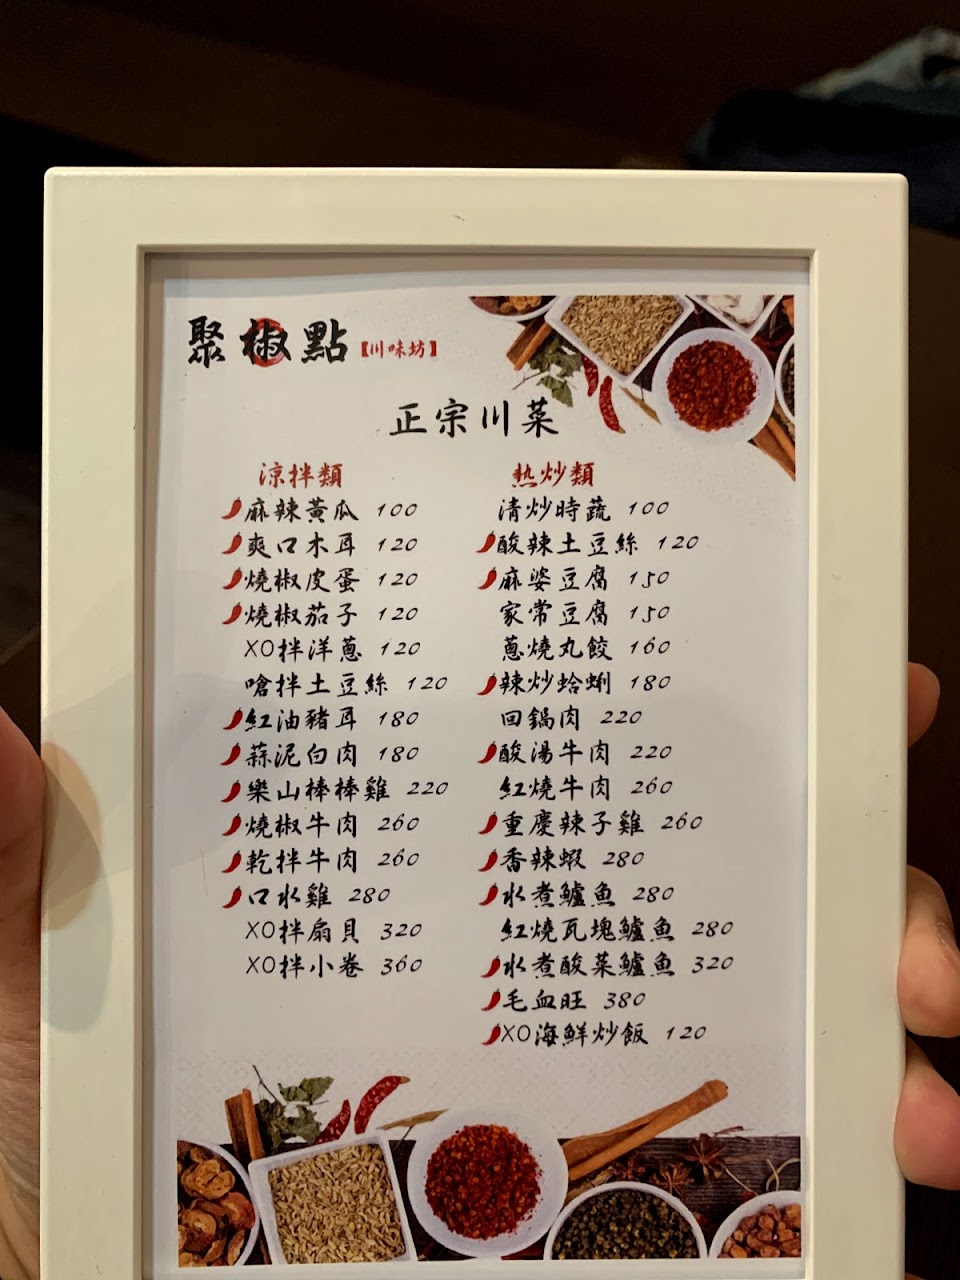 聚椒點【川味坊】
正宗川菜
涼拌類
麻辣黃瓜 100
爽口木耳 120
燒椒皮蛋 120
燒椒茄子 120
XO拌洋蔥 120
嗆拌土豆絲 120
紅油豬耳 180
蒜泥白肉 180
樂山棒棒雞 220
燒椒牛肉 260
乾拌牛肉 260
口水雞 280
XO拌扇貝 320
XO拌小卷 360
熱炒類
清炒時蔬 100
酸辣土豆絲 120
麻婆豆腐 150
家常豆腐 150
蔥燒丸餃 160
辣炒蛤蜊 180
回鍋肉 220
酸湯牛肉 220
紅燒牛肉 260
重慶辣子雞 260
香辣蝦 280
水煮鱸魚 280
紅燒瓦塊鱸魚 280
水煮酸菜鱸魚 320
毛血旺 380
XO海鮮炒飯 120